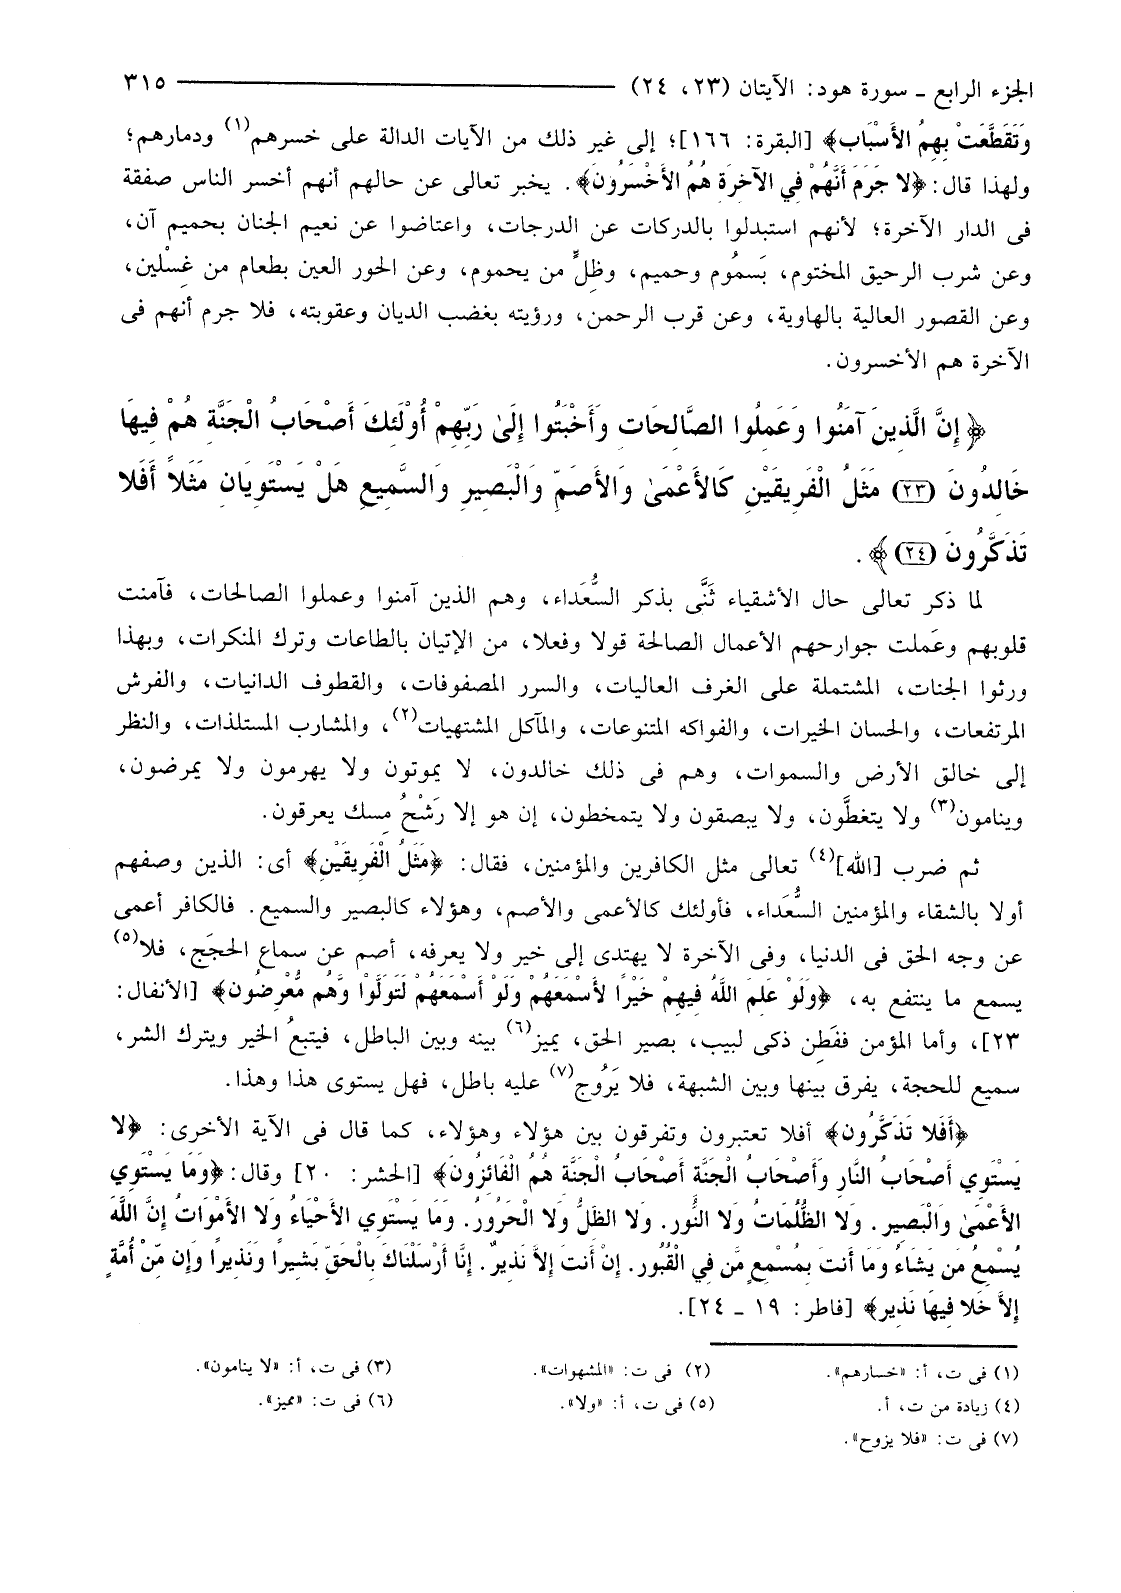 الجزء الرابع ـ سورة هود: الآيتان (٢٣، ٢٤) ٣١٥
وَتَقَطَّعَتْ بِهِمُ الأَسْبَاب﴾ [البقرة: ١٦٦]؛ إلى غير ذلك من الآيات الدالة على خسرهم(١) ودمارهم؛
ولهذا قال: ﴿لا جَرَمَ أَنَّهُمْ فِي الآخِرَةِ هُمُ الأَخْسَرُونَ﴾. يخبر تعالى عن حالهم أنهم أخسر الناس صفقة
فى الدار الآخرة؛ لأنهم استبدلوا بالدركات عن الدرجات، واعتاضوا عن نعيم الجنان بحميم آن،
وعن شرب الرحيق المختوم، بَسمُوم وحميم، وظِلٍّ من يحموم، وعن الحور العين بطعام من غِسْلين،
وعن القصور العالية بالهاوية، وعن قرب الرحمن، ورؤيته بغضب الديان وعقوبته، فلا جرم أنهم فى
الآخرة هم الأخسرون.
﴿إِنَّ الَّذِينَ آمَنُوا وَعَمِلُوا الصَّالِحَاتِ وَأَخْبَتُوا إِلَىٰ رَبِّهِمْ أُوْلَئِكَ أَصْحَابُ الْجَنَّةِ هُمْ فِيهَا
خَالِدُونَ (٢٣) مَثَلُ الْفَرِيقَيْنِ كَالأَعْمَىٰ وَالأَصَمِّ وَالْبَصِيرِ وَالسَّمِيعِ هَلْ يَسْتَوِيَانِ مَثَلاً أَفَلا
تَذَكَّرُونَ (٢٤)﴾.
لما ذكر تعالى حال الأشقياء ثَنَّى بذكر السُّعَداء، وهم الذين آمنوا وعملوا الصالحات، فآمنت
قلوبهم وعَملت جوارحهم الأعمال الصالحة قولا وفعلا، من الإتيان بالطاعات وترك المنكرات، وبهذا
ورثوا الجنات، المشتملة على الغرف العاليات، والسرر المصفوفات، والقطوف الدانيات، والفرش
المرتفعات، والحسان الخيرات، والفواكه المتنوعات، والمآكل المشتهيات(٢)، والمشارب المستلذات، والنظر
إلى خالق الأرض والسموات، وهم فى ذلك خالدون، لا يموتون ولا يهرمون ولا يمرضون،
وينامون(٣) ولا يتغطَّون، ولا يبصقون ولا يتمخطون، إن هو إلا رَشْحُ مِسك يعرقون.
ثم ضرب [الله](٤) تعالى مثل الكافرين والمؤمنين، فقال: ﴿مَثَلُ الْفَرِيقَيْنِ﴾ أى: الذين وصفهم
أولا بالشقاء والمؤمنين السُّعَداء، فأولئك كالأعمى والأصم، وهؤلاء كالبصير والسميع. فالكافر أعمى
عن وجه الحق فى الدنيا، وفى الآخرة لا يهتدى إلى خير ولا يعرفه، أصم عن سماع الحجَج، فلا(٥)
يسمع ما ينتفع به، ﴿وَلَوْ عَلِمَ اللَّهُ فِيهِمْ خَيْرًا لأَسْمَعَهُمْ وَلَوْ أَسْمَعَهُمْ لَتَوَلَّوْا وَّهُم مُّعْرِضُون﴾ [الأنفال:
٢٣]، وأما المؤمن ففَطِن ذكى لبيب، بصير الحق، يميز(٦) بينه وبين الباطل، فيتبعُ الخير ويترك الشر،
سميع للحجة، يفرق بينها وبين الشبهة، فلا يَرُوج(٧) عليه باطل، فهل يستوى هذا وهذا.
﴿أَفَلا تَذَكَّرُون﴾ أفلا تعتبرون وتفرقون بين هؤلاء وهؤلاء، كما قال فى الآية الأخرى: ﴿لا
يَسْتَوِي أَصْحَابُ النَّارِ وَأَصْحَابُ الْجَنَّةِ أَصْحَابُ الْجَنَّةِ هُمُ الْفَائِزُونَ﴾ [الحشر: ٢٠] وقال: ﴿وَمَا يَسْتَوِي
الأَعْمَىٰ وَالْبَصِير. وَلا الظُّلُمَاتُ وَلا النُّور. وَلا الظِّلُّ وَلا الْحَرُور. وَمَا يَسْتَوِي الأَحْيَاءُ وَلا الأَمْوَاتُ إِنَّ اللَّهَ
يُسْمِعُ مَن يَشَاءُ وَمَا أَنتَ بِمُسْمِعٍ مَّن فِي الْقُبُور. إِنْ أَنتَ إِلاَّ نَذِيرٌ. إِنَّا أَرْسَلْنَاكَ بِالْحَقِّ بَشِيرًا وَنَذِيرًا وَإِن مِّنْ أُمَّةٍ
إِلاَّ خَلا فِيهَا نَذِير﴾ [فاطر: ١٩ ـ ٢٤].
(١) فى ت، أ: «خسارهم». (٢) فى ت: «المشهوات». (٣) فى ت، أ: «لا ينامون».
(٤) زيادة من ت، أ. (٥) فى ت، أ: «ولا». (٦) فى ت: «مميز».
(٧) فى ت: «فلا يزوح».